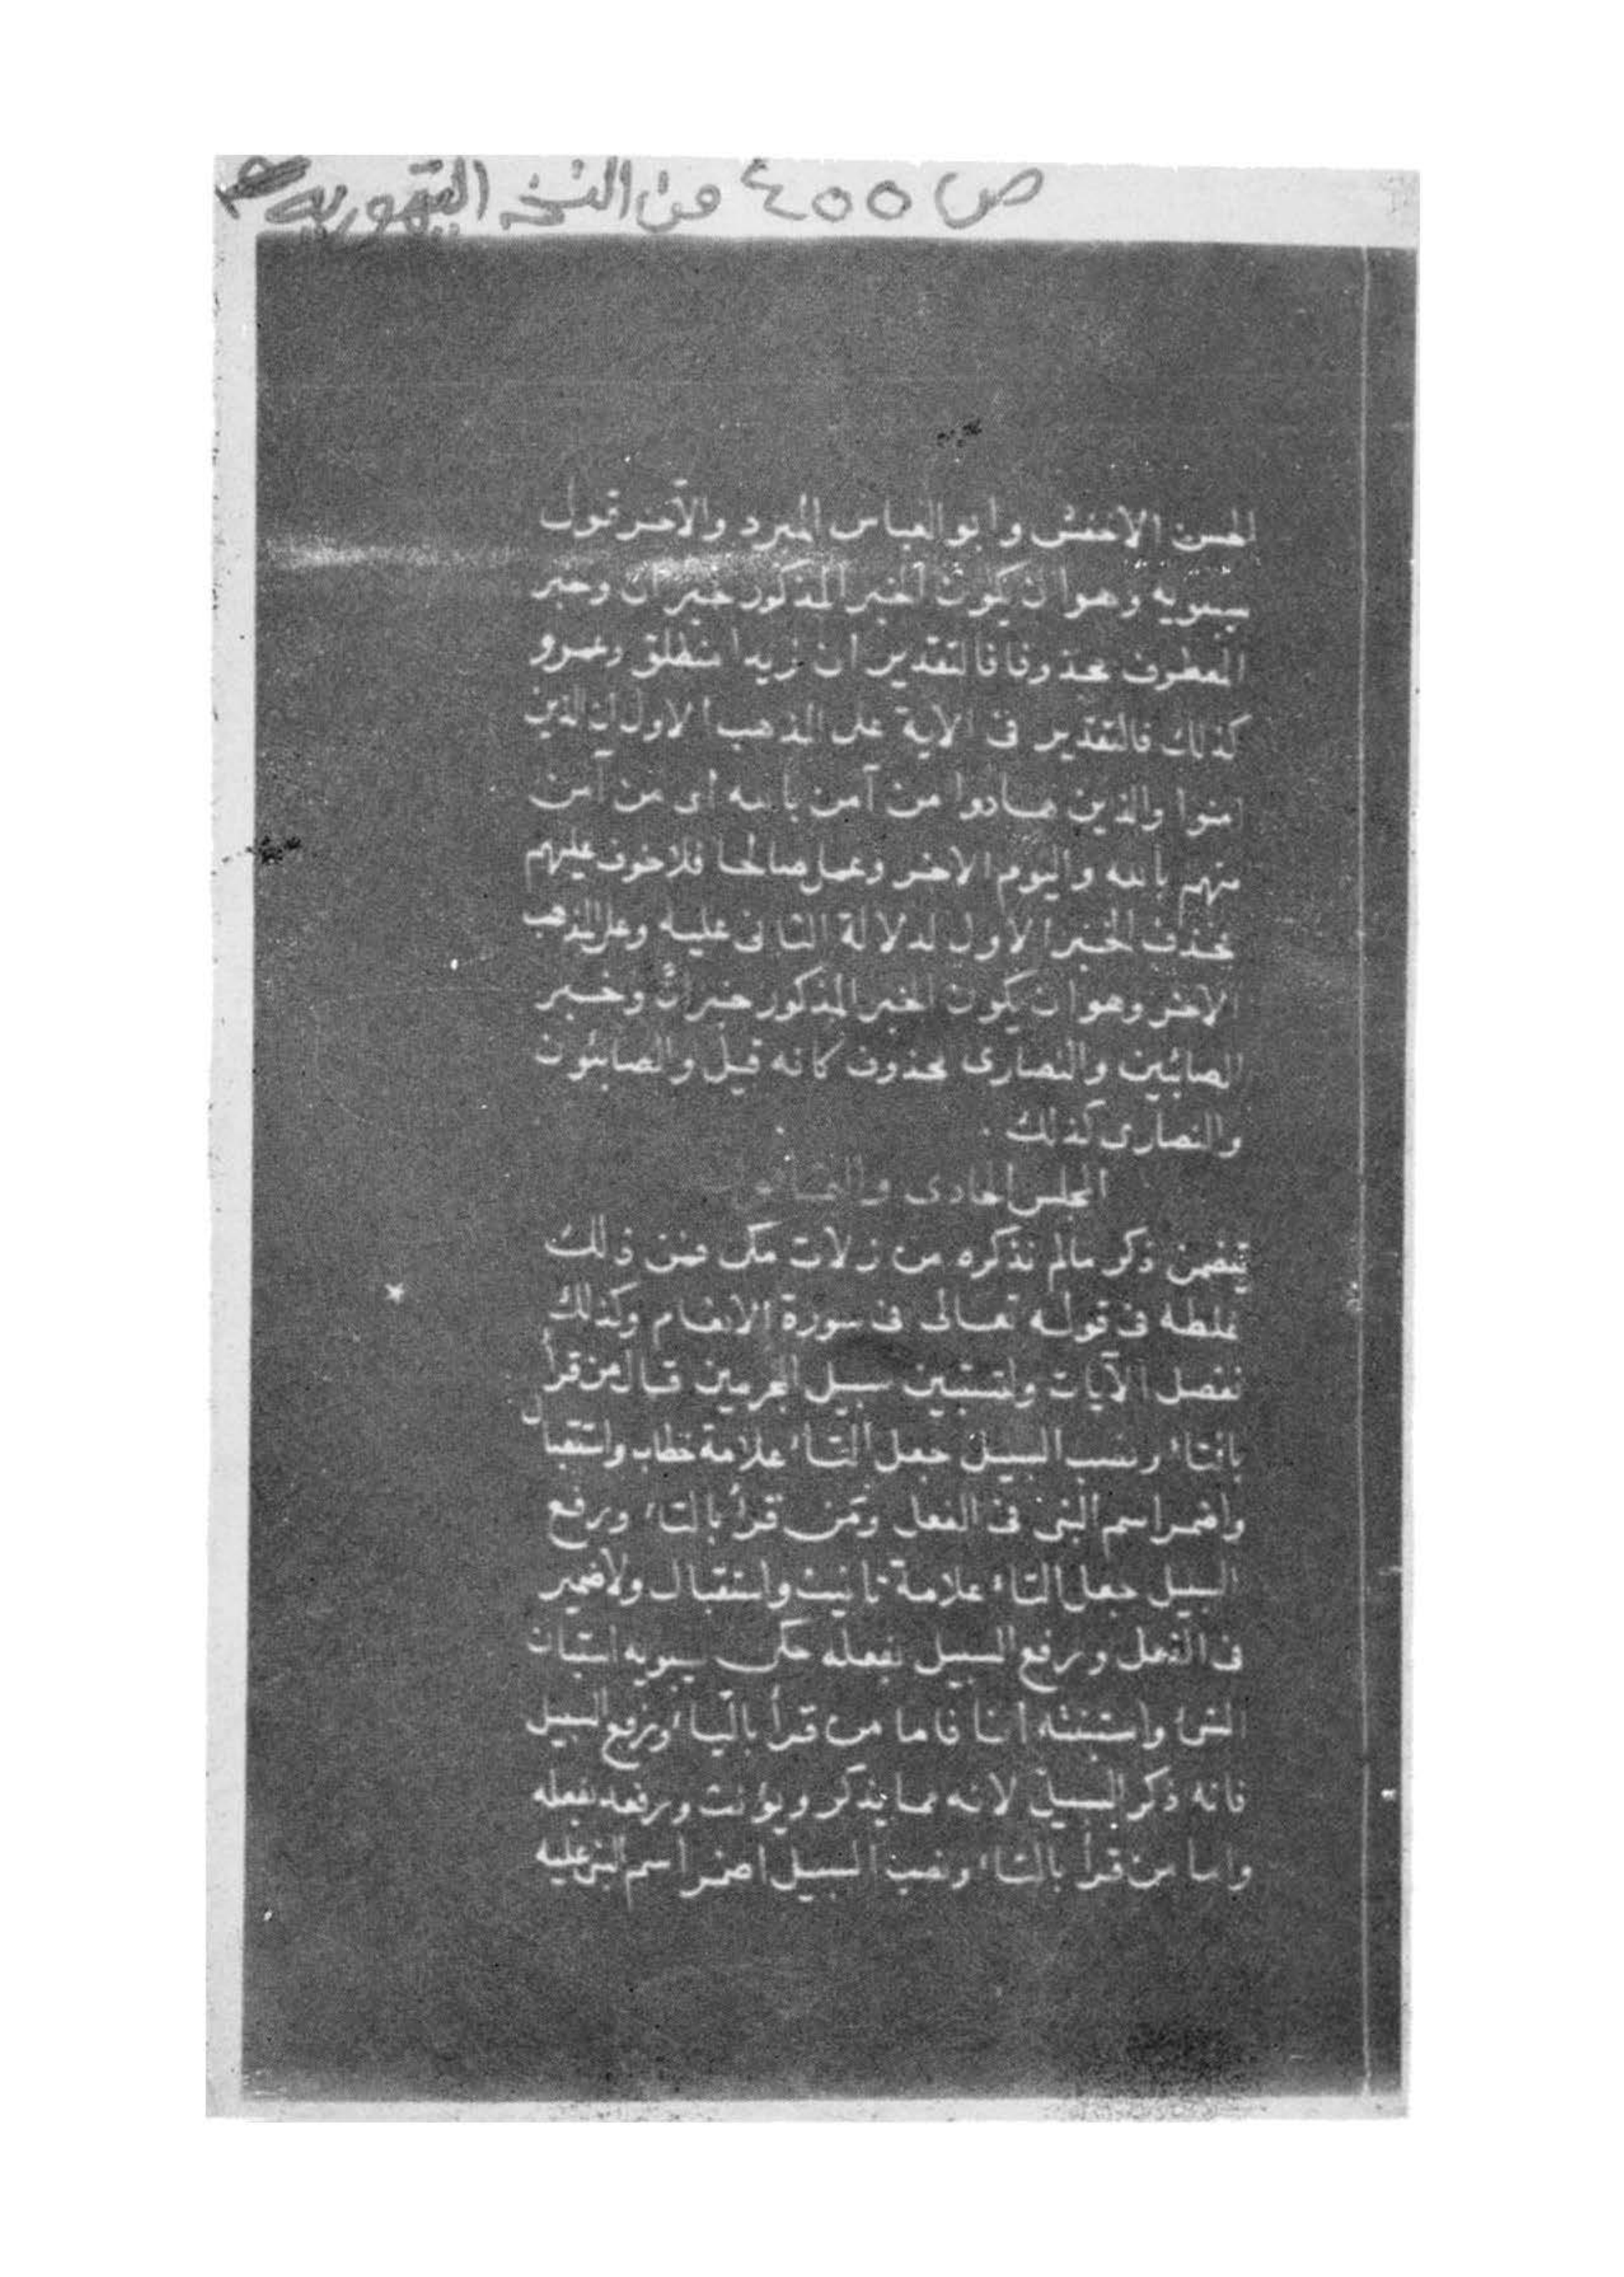 ص ٤٥٥ من النسخة التيمورية
الحسن الاخفش وابو العباس المبرد والآخر قول
سيبويه وهو ان يكون الخبر المذكور خبر ان وخبر
المعطوف محذوفا فالتقدير ان زيدا منطلق وعمرو
كذلك فالتقدير فى الآية على المذهب الاول ان الذين
امنوا والذين هادوا من آمن بالله اى من آمن
منهم بالله واليوم الاخر وعمل صالحا فلا خوف عليهم
فحذف الخبر الاول لدلالة الثانى عليه وعلى المذهب
الاخر وهو ان يكون الخبر المذكور خبر انّ وخبر
الصائبين والنصارى محذوف كانه قيل والصابئون
والنصارى كذلك
المجلس الحادى والثمانون
يتضمن ذكر مالم نذكره من زلات مكى فمن ذلك
غلطه فى قوله تعالى فى سورة الانعام وكذلك
نفصل الآيات ولتستبين سبيل المجرمين قال من قرأ
بالتاء ونصب السبيل جعل التاء علامة خطاب واستقبال
واضمر اسم النبى فى الفعل ومن قرأ بالتاء ورفع
السبيل جعل التاء علامة تانيث واستقبال ولا ضمير
فى الفعل ورفع السبيل بفعله حكى سيبويه استبان
الشئ واستبنته انا فاما من قرأ بالياء ورفع السبيل
فانه ذكر السبيل لانه مما يذكر ويؤنث ورفعه بفعله
واما من قرأ بالتاء ونصب السبيل اضمر اسم النبى عليه